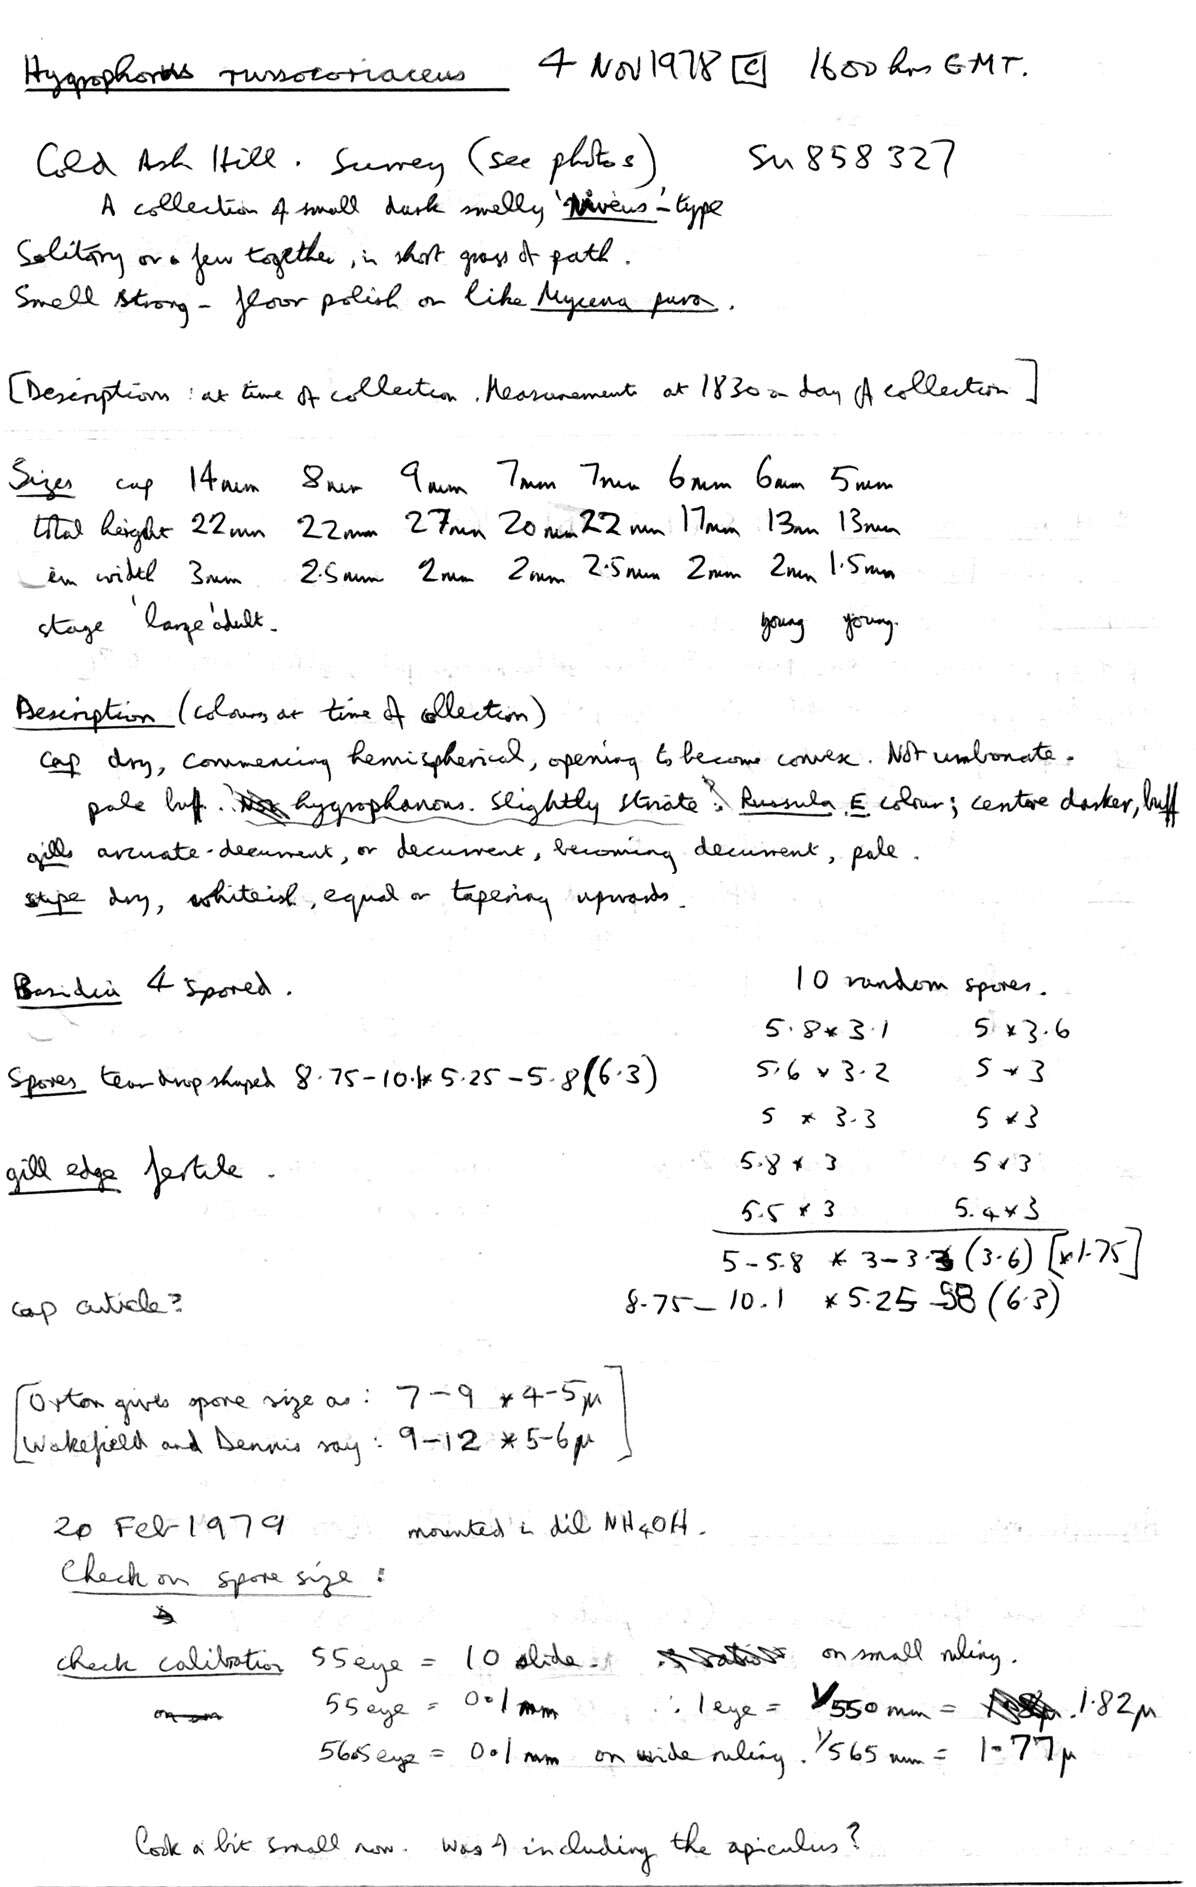 Hygrophorus russocoriaceus 4 Nov 1978 [C] 1600 hrs GMT.
Cold Ash Hill. Surrey (see photos) SU 858 327
A collection of small dark smelly 'niveus'-type
Solitary or a few together, in short grass of path.
Smell strong - floor polish or like Mycena pura.
[Descriptions: at time of collection. Measurements at 1830 on day of collection]
Sizes cap 14mm 8mm 9mm 7mm 7mm 6mm 6mm 5mm
total height 22mm 22mm 27mm 20mm 22mm 17mm 13mm 13mm
width 3mm 2.5mm 2mm 2mm 2.5mm 2mm 2mm 1.5mm
stage 'large' adult. young young.
Description (colours at time of collection)
cap dry, commencing hemispherical, opening to become convex. Not umbonate.
pale buff. hygrophanous. Slightly striate? Russula E colour; centre darker, buff
gills arcuate-decurrent, or decurrent, becoming decurrent, pale.
stipe dry, whiteish, equal or tapering upwards.
Basidia 4 spored.
Spores tear drop shaped 8.75-10.1 * 5.25-5.8 (6.3)
gill edge fertile.
cap cuticle?
10 random spores.
5.8 * 3.1 5 * 3.6
5.6 * 3.2 5 * 3
5 * 3.3 5 * 3
5.8 * 3 5 * 3
5.5 * 3 5.4 * 3
5-5.8 * 3-3.3 (3.6) [*1.75]
8.75-10.1 * 5.25-5.8 (6.3)
[Orton gives spore size as: 7-9 * 4-5µ
Wakefield and Dennis say: 9-12 * 5-6µ]
20 Feb 1979 mounted in dil NH4OH.
Check on spore size:
check calibration 55 eye = 10 slide. on small ruling.
55 eye = 0.1mm ∴ 1 eye = 1/550 mm = 1.82µ
56.5 eye = 0.1mm on wide ruling. 1/565 mm = 1.77µ
Look a bit small now. Was I including the apiculus?